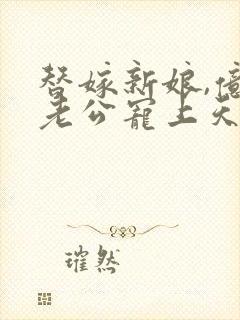 替嫁新娘,億
老公寵上天
璀然